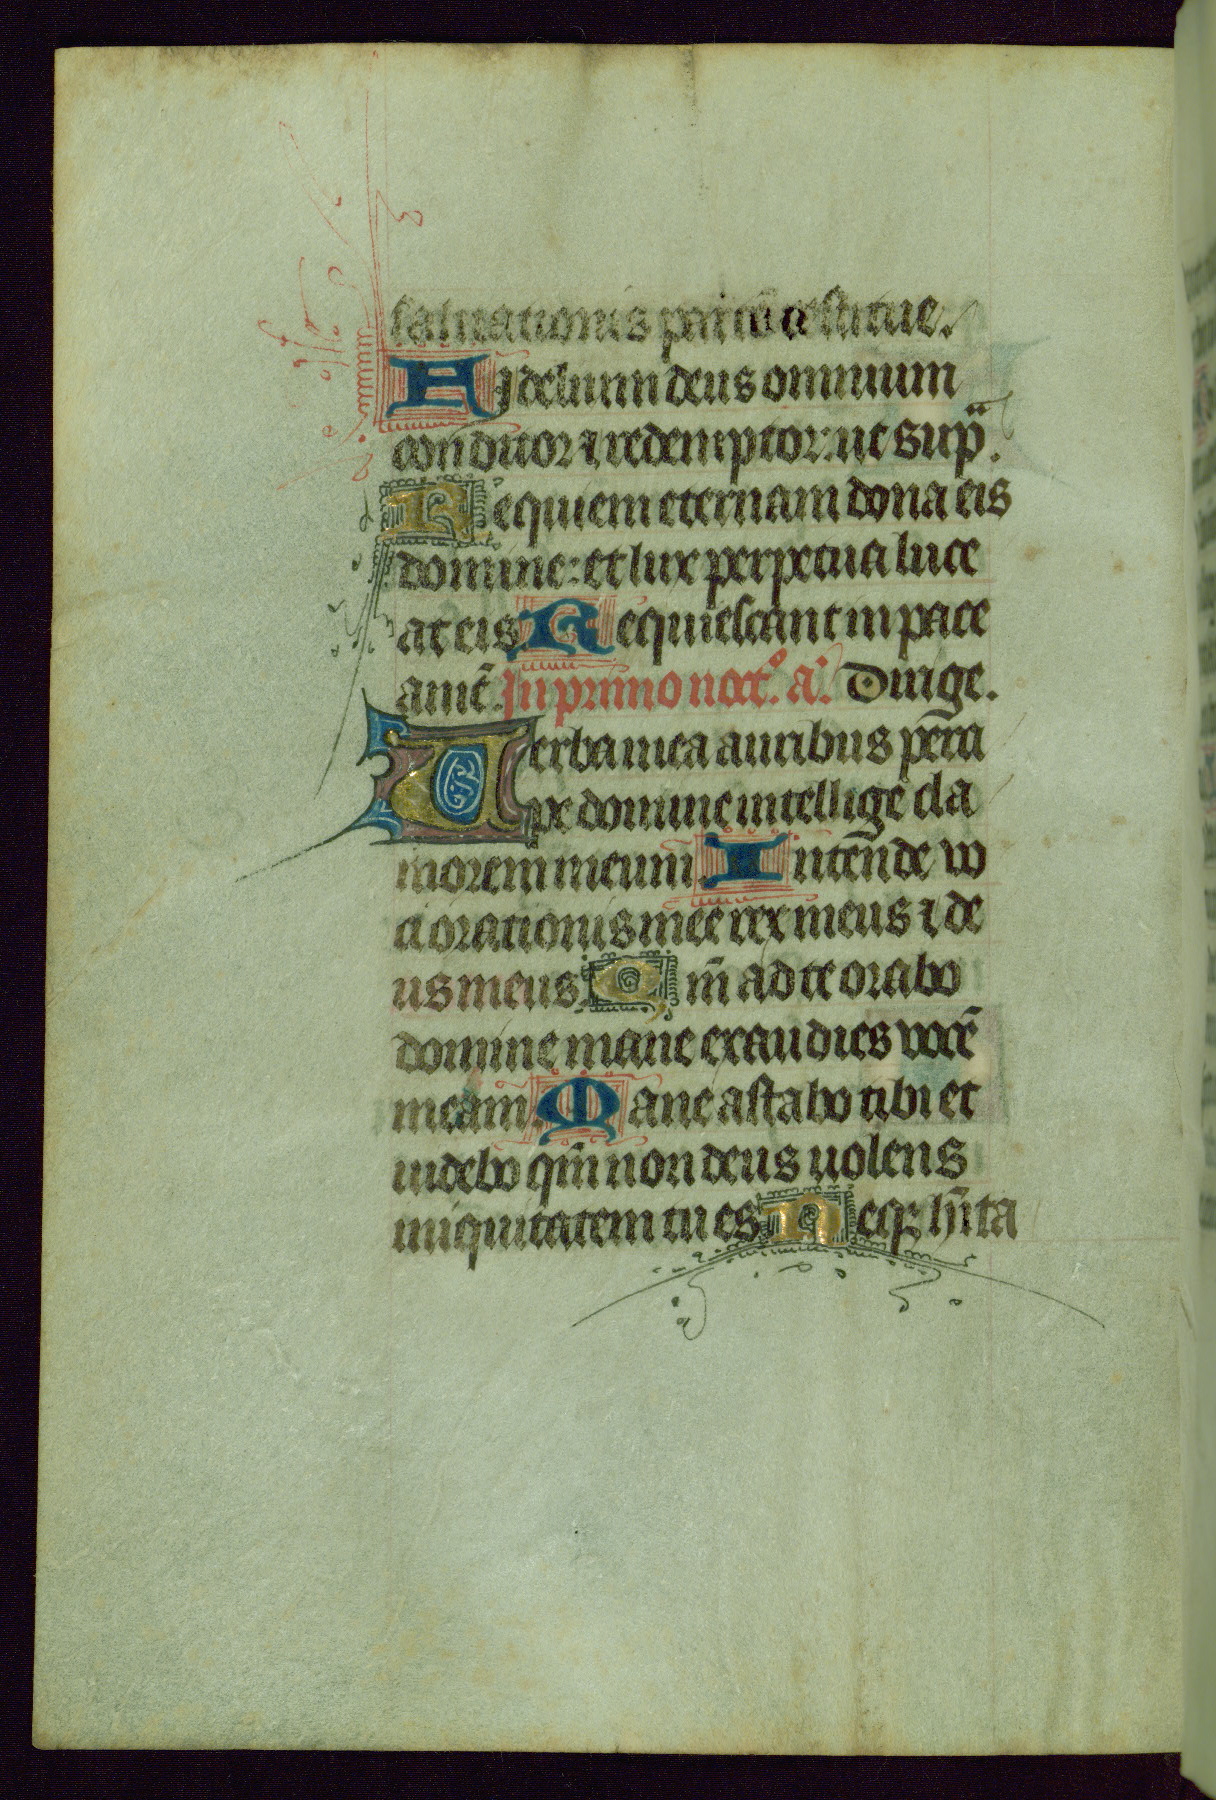 saluationis
Fidelium deus omnium
conditor ⁊ redemptor: ut sup̄.
Requiem eternam dona eis
domine: et lux perpetua luce
at eis. Requiescant in pace
amē. In primo noct᷒. a᷒. Dirige.
Uerba mea auribus ꝑcip̄a
pe domine intellige cla
morem meum̄. Intende vo
ci orationis mee rex meus ⁊ de
us meus. Qm̄ ad te orabo
domine mane exaudies vocē
meam. Mane astabo tibi et
uidebo qm̄ non deus uolens
iniquitatem tu es. Neqꝫ hīta